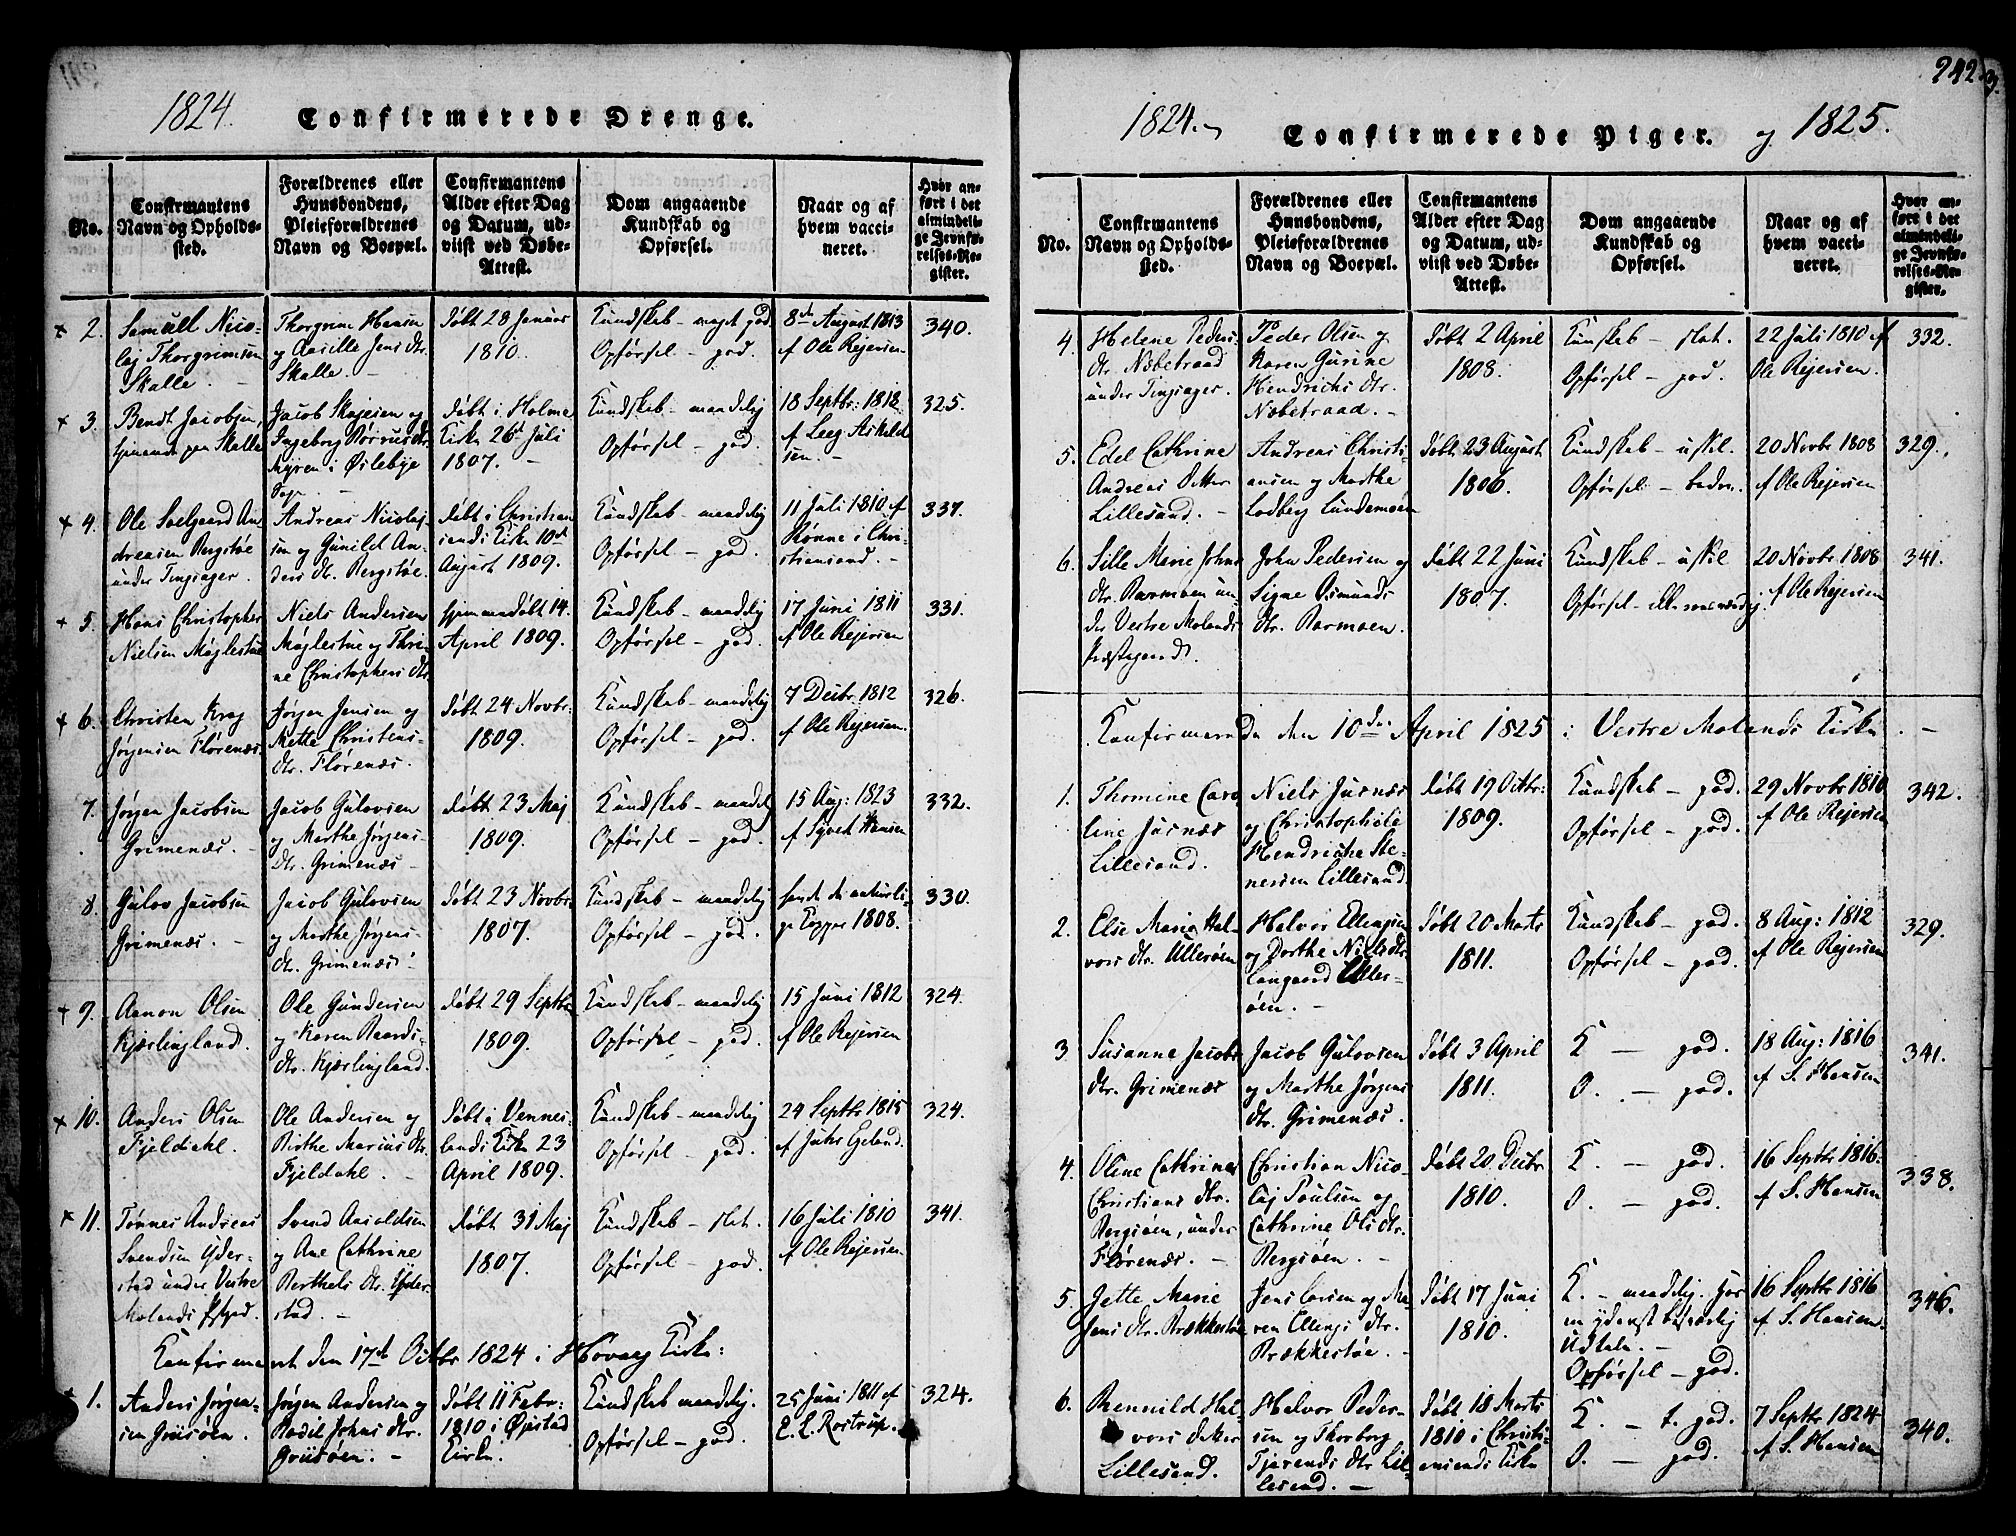 1824. Confirmerede Drenge.
No.
Confirmantens Navn og Opholdssted.
Forældrenes eller Huusbondens, Pleieforældrenes Navn og Boepæl.
Confirmantens Alder efter Dag og Datum, udviist ved Døbe-Attest.
Dom angaaende Kundskab og Opførsel.
Naar og af hvem vaccineret.
Hvor anført i det almindelige Jevnførelses-Register.
× 2.
Samuel Nico-
laj Thorgrimsen
Skalle.
Thorgrim Hansen
og Aasille Jens dtr.
Skalle.
døbt 28 Januar
1810.
Kundskab - meget god
Opførsel - god.
8de August 1813
af Ole Rejersen
340.
× 3.
Bendt Jacobsen,
tjenende paa Skalle
Jacob
Ingeborg
Myren i Øslebye
Sogn.
døbt i Holme
Kirke 26de Juli
1807.
Kundskab - maadelig
Opførsel - god.
18 Septbr: 1812
325.
× 4.
Ole Soelgaard An-
dreasen Bergstøe
under Tingsager.
Andreas Nicolaj-
sen og Gunild An-
ders dtr. Bergstøe.
døbt i Christian
sands Kirke 10de
August 1809.
Kundskab - maadelig
Opførsel - god.
11 Juli 1810 af
Rønne i Chri-
stiansand.
337.
+ 5.
Hans Christopher
Nielsen Møglestue
Niels Andersen
Møglestue og Thri-
ne Christophers dtr.
hjemmedøbt 14
April 1809.
Kundskab - maadelig
Opførsel - god.
17 Juni 1811
af Ole Rejersen
331.
× 6.
Christen Krog
Jørgensen Flørenæs.
Jørgen Jensen og
Mette Christens-
dtr. Flørenæs.
døbt 24 Novbr:
1809.
Kundskab - maadelig
Opførsel - god.
7 Decbr. 1812
af Ole Rejersen.
326.
7.
Jørgen Jacobsen
Grimenæs.
Jacob Gulovsen
og Marthe Jørgens-
dtr. Grimenæs
døbt 23 Maj
1809.
Kundskab - maadelig
Opførsel - god.
15 Aug: 1823
af Syvert Hansen
332.
8.
Gulov Jacobsen
Grimenæs.
Jacob Gulovsen
og Marthe Jørgens-
dtr. Grimenæs.
døbt 23 Novbr
1807.
Kundskab - maadelig
Opførsel - god.
havt de naturli-
ge Kopper 1808.
330.
+ 9.
Aanon Olsen
Kjærlingland.
Ole Gundersen
og Karen Baards-
dtr. Kjærlingland.
døbt 29 Septbr
1809.
Kundskab - maadelig
Opførsel - god.
15 Juni 1812
af Ole Rejersen
324.
× 10.
Anders Olsen
Fjeldahl.
Ole Andersen og
Birthe Marius dtr.
Fjeldahl.
døbt i Vennes-
lands Kirke 23
April 1809.
Kundskab - maadelig
Opførsel - god.
24 Septbr 1815
324.
× 11.
Tønnes Andreas
Svendsen Yder-
stad under Vestre
Molands Pgjæld.
Svend Aasoldsen
og Ane Cathrine
Berthels dtr. Yder-
stad.
døbt 31 Maj
1807.
Kundskab - slet.
Opførsel - god.
16 Juli 1810
af Ole Rejersen
341.
Confirmeret den 17de Octbr 1824 i Hovaag Kirke:
1.
Anders Jørgen-
sen Griisøen.
Jørgen Andersen og
Bodil Johns dtr.
Griisøen.
døbt 11 Febr:
1810 i Øjestad
Kirke.
Kundskab maadelig.
Opførsel - god.
25 Juni 1811 af
Rostrup.
324.
242.
1824. Confirmerede Piger. og 1825.
No.
Confirmantens Navn og Opholdssted.
Forældrenes eller Huusbondens, Pleieforældrenes Navn og Boepæl.
Confirmantens Alder efter Dag og Datum, udviist ved Døbe-Attest.
Dom angaaende Kundskab og Opførsel.
Naar og af hvem vaccineret.
Hvor anført i det almindelige Jevnførelses-Register.
4.
Helene Peders
dtr. Næbetraad
under Tingsager.
Peder Olsen og
Karen Gurine
Hendrichs dtr.
Næbetraad.
døbt 2 April
1808.
Kunskab - slet.
Opførsel - god.
22 Juli 1810 af
Ole Rejersen.
332.
5.
Edel Cathrine
Andreas Datter
Lillesand.
Andreas Christi-
ansen og Marthe
Lodberg Lundemoen
døbt 23 August
1806.
Kundskab - uskil.
Opførsel - bedre.
20 Novbr 1808
af Ole Rejersen
329.
6.
Sille Marie Johns
dtr. Barmoen un-
der Vestre Molands
Præstegjeld.
John Pedersen og
Signe Osmunds
dtr. Barmoen.
døbt 22 Juni
1807.
Kundskab - uskil
Opførsel -
20 Novbr 1808
af Ole Rejersen
341.
Confirmerede den 10de April 1825 i Vestre Molands Kirke.
1.
Thomine Caro
line Jusnæs
Lillesand.
Niels Jusnæs
og Christophile
Hendriche Ste-
nersen Lillesand
døbt 19 Octbr:
1809.
Kundskab - god.
Opførsel - god.
29 Novbr 1810
af Ole Rejersen
342.
2.
Else Marie Hal-
vors dtr. Ulleröen
Halvor Ellingsen
og Dorthe Niels dtr.
Langaard Uller-
øen.
døbt 20 Marts
1811.
Kundskab - god.
Opførsel - god.
8 Aug: 1812
af Ole Rejersen
329.
3.
Susanne Jacobs
dtr. Grimenæs
Jacob Gulovsen
og Marthe Jørgens
dtr. Grimenæs.
døbt 3 April
1811.
K - god.
O. - god.
18 Aug: 1816
af S. Hansen
341.
4.
Oline Cathrine
Christians dtr.
Bergsøen, under
Flørenæs.
Christian Nico-
laj Poulsen og
Cathrine Ols dtr.
Bergsøen
døbt 20 Decbr
1810.
K. - god.
O. - god.
16 Septbr 1816.
af S. Hansen
338.
5.
Jette Marie
Jens dtr. Brækkestøe
Jens Larsen og Ma-
ren Ellings dtr.
Brækkestøe.
døbt 17 Juni
1810.
K. - maadelig. har
en yderst besværlig
Udtale.
Opførsel - god.
16 Septbr 1816
af S. Hansen.
346.
6.
Rennild Hal-
vors datter
Lillesand.
Halvor Peder-
sen og Thorborg
Tjerands dtr Lil-
lesand.
døbt 18 Marts
1810 i Christi-
ansands Kirke
K. - t. god.
O. - god.
7 Septbr 1824
af S. Hansen
340.